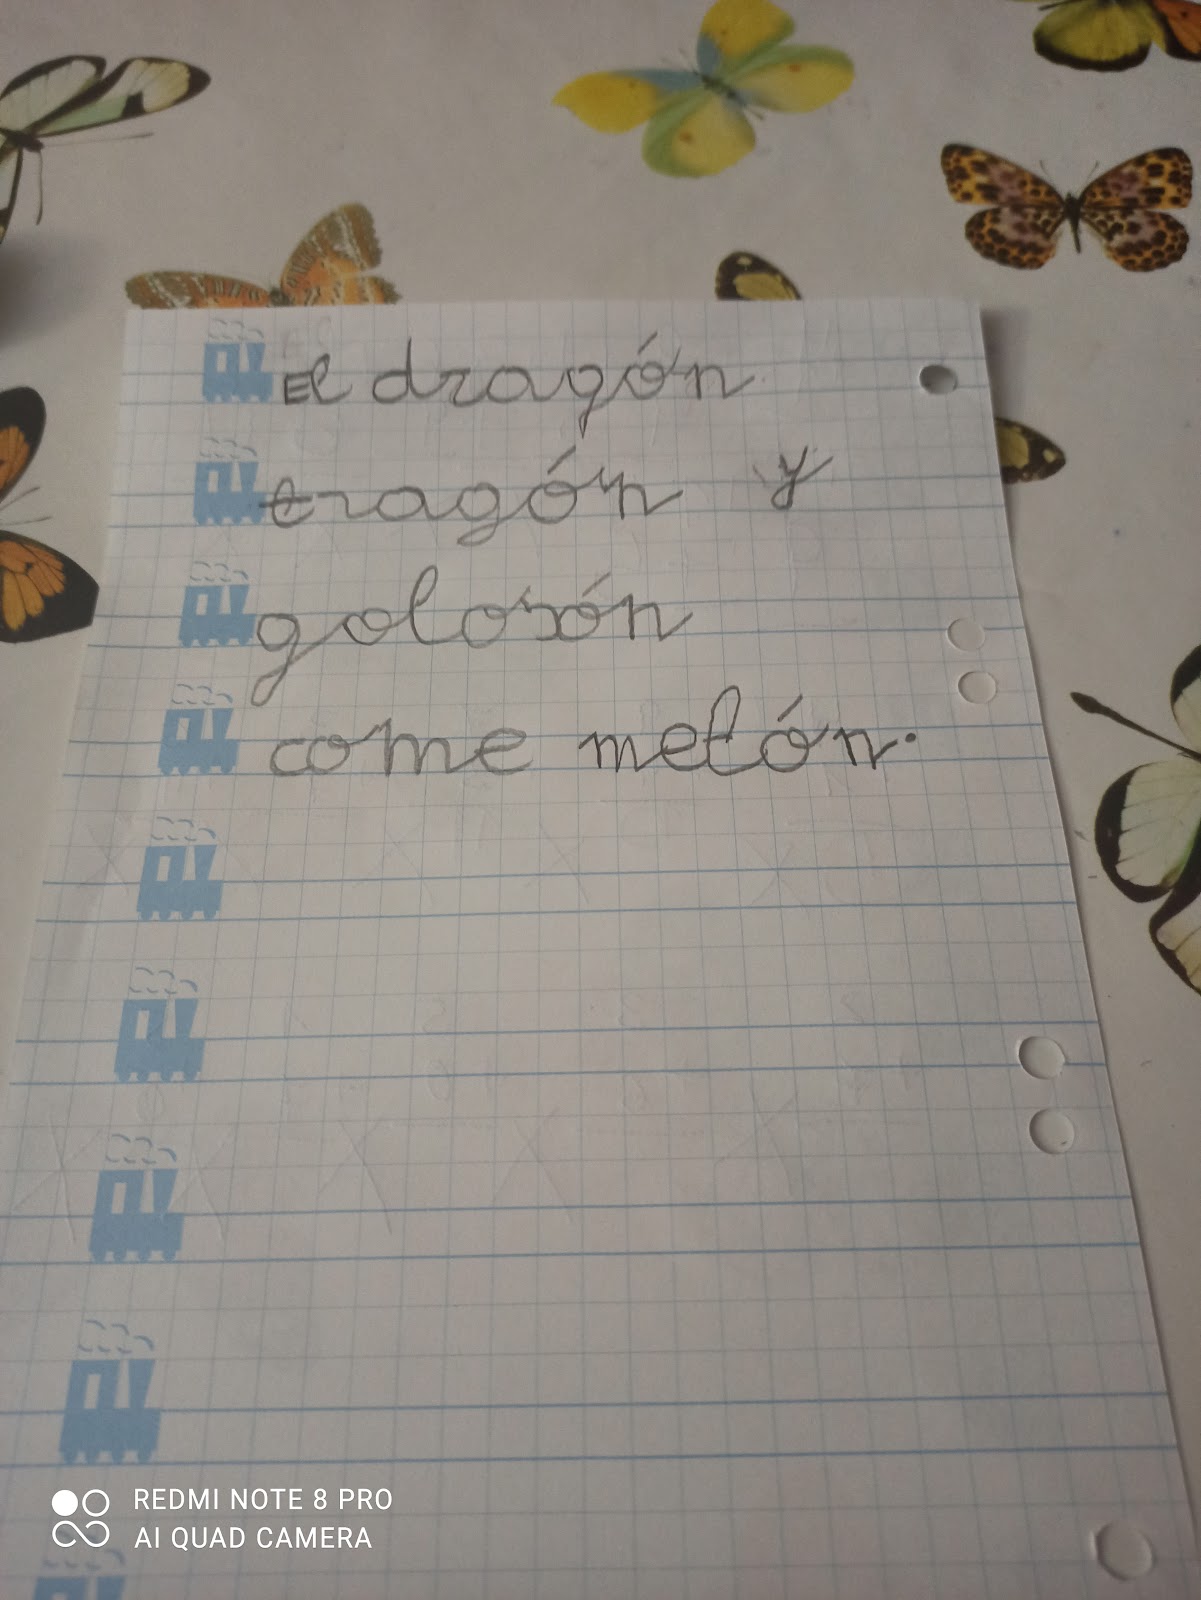 El dragón
tragón y
golosón
come melón.
REDMI NOTE 8 PRO
AI QUAD CAMERA